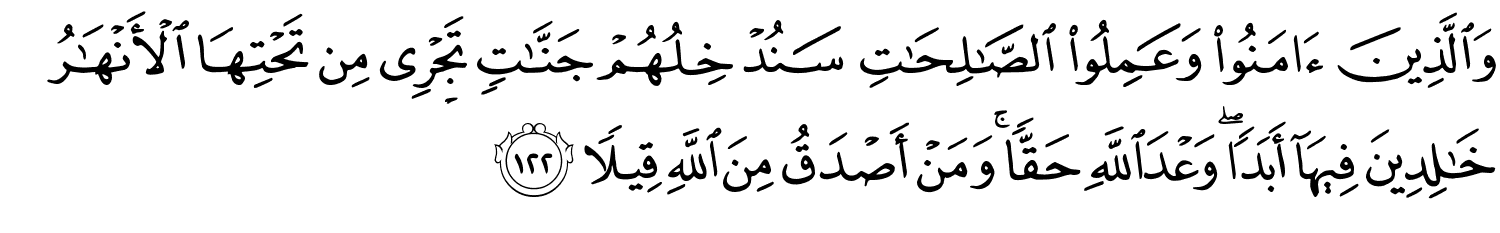 وَٱلَّذِينَ ءَامَنُوا۟ وَعَمِلُوا۟ ٱلصَّـٰلِحَـٰتِ سَنُدْخِلُهُمْ جَنَّـٰتٍ تَجْرِى مِن تَحْتِهَا ٱلْأَنْهَـٰرُ
خَـٰلِدِينَ فِيهَآ أَبَدًا ۖ وَعْدَ ٱللَّهِ حَقًّا ۚ وَمَنْ أَصْدَقُ مِنَ ٱللَّهِ قِيلًا ١٢٢